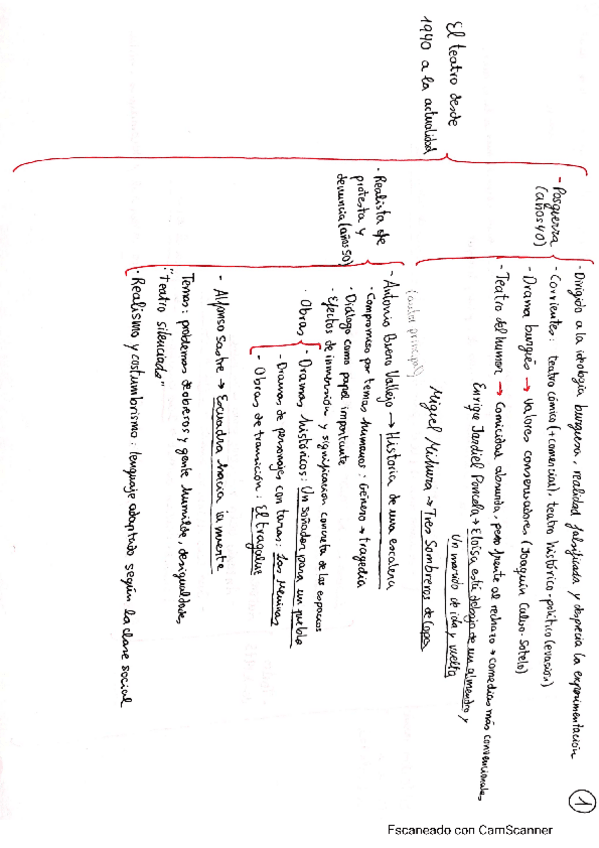 El teatro desde
1940 a la actualidad
- Posguerra
(años 40)
· Dirigido a la ideología burguesa, realidad falsificada y desprecia la experimentación
· Corrientes: teatro cómico (+comercial), teatro histórico-político (evasión)
- Drama burgués → valores conservadores (Joaquín Calvo-Sotelo)
- Teatro del humor → comicidad absurda, pero frente al rechazo → comedias más convencionales
Enrique Jardiel Poncela → Eloísa está debajo de un almendro y
Un marido de ida y vuelta
Miguel Mihura → Tres Sombreros de Copa
· Realista de
protesta y
denuncia (años 50)
(autor principal)
- Antonio Buero Vallejo → Historia de una escalera
· Compromiso por temas humanos: Género → tragedia
· Diálogo como papel importante
· Efectos de inmersión y significación concreta de los espacios
· Obras
- Dramas históricos: Un soñador para un pueblo
- Dramas de personajes con taras: Las Meninas
- Obras de transición: El tragaluz
- Alfonso Sastre → Escuadra hacia la muerte
Temas: problemas de obreros y gente humilde, desigualdades,
"teatro silenciado"
· Realismo y costumbrismo: lenguaje adaptado según la clase social
1
Escaneado con CamScanner